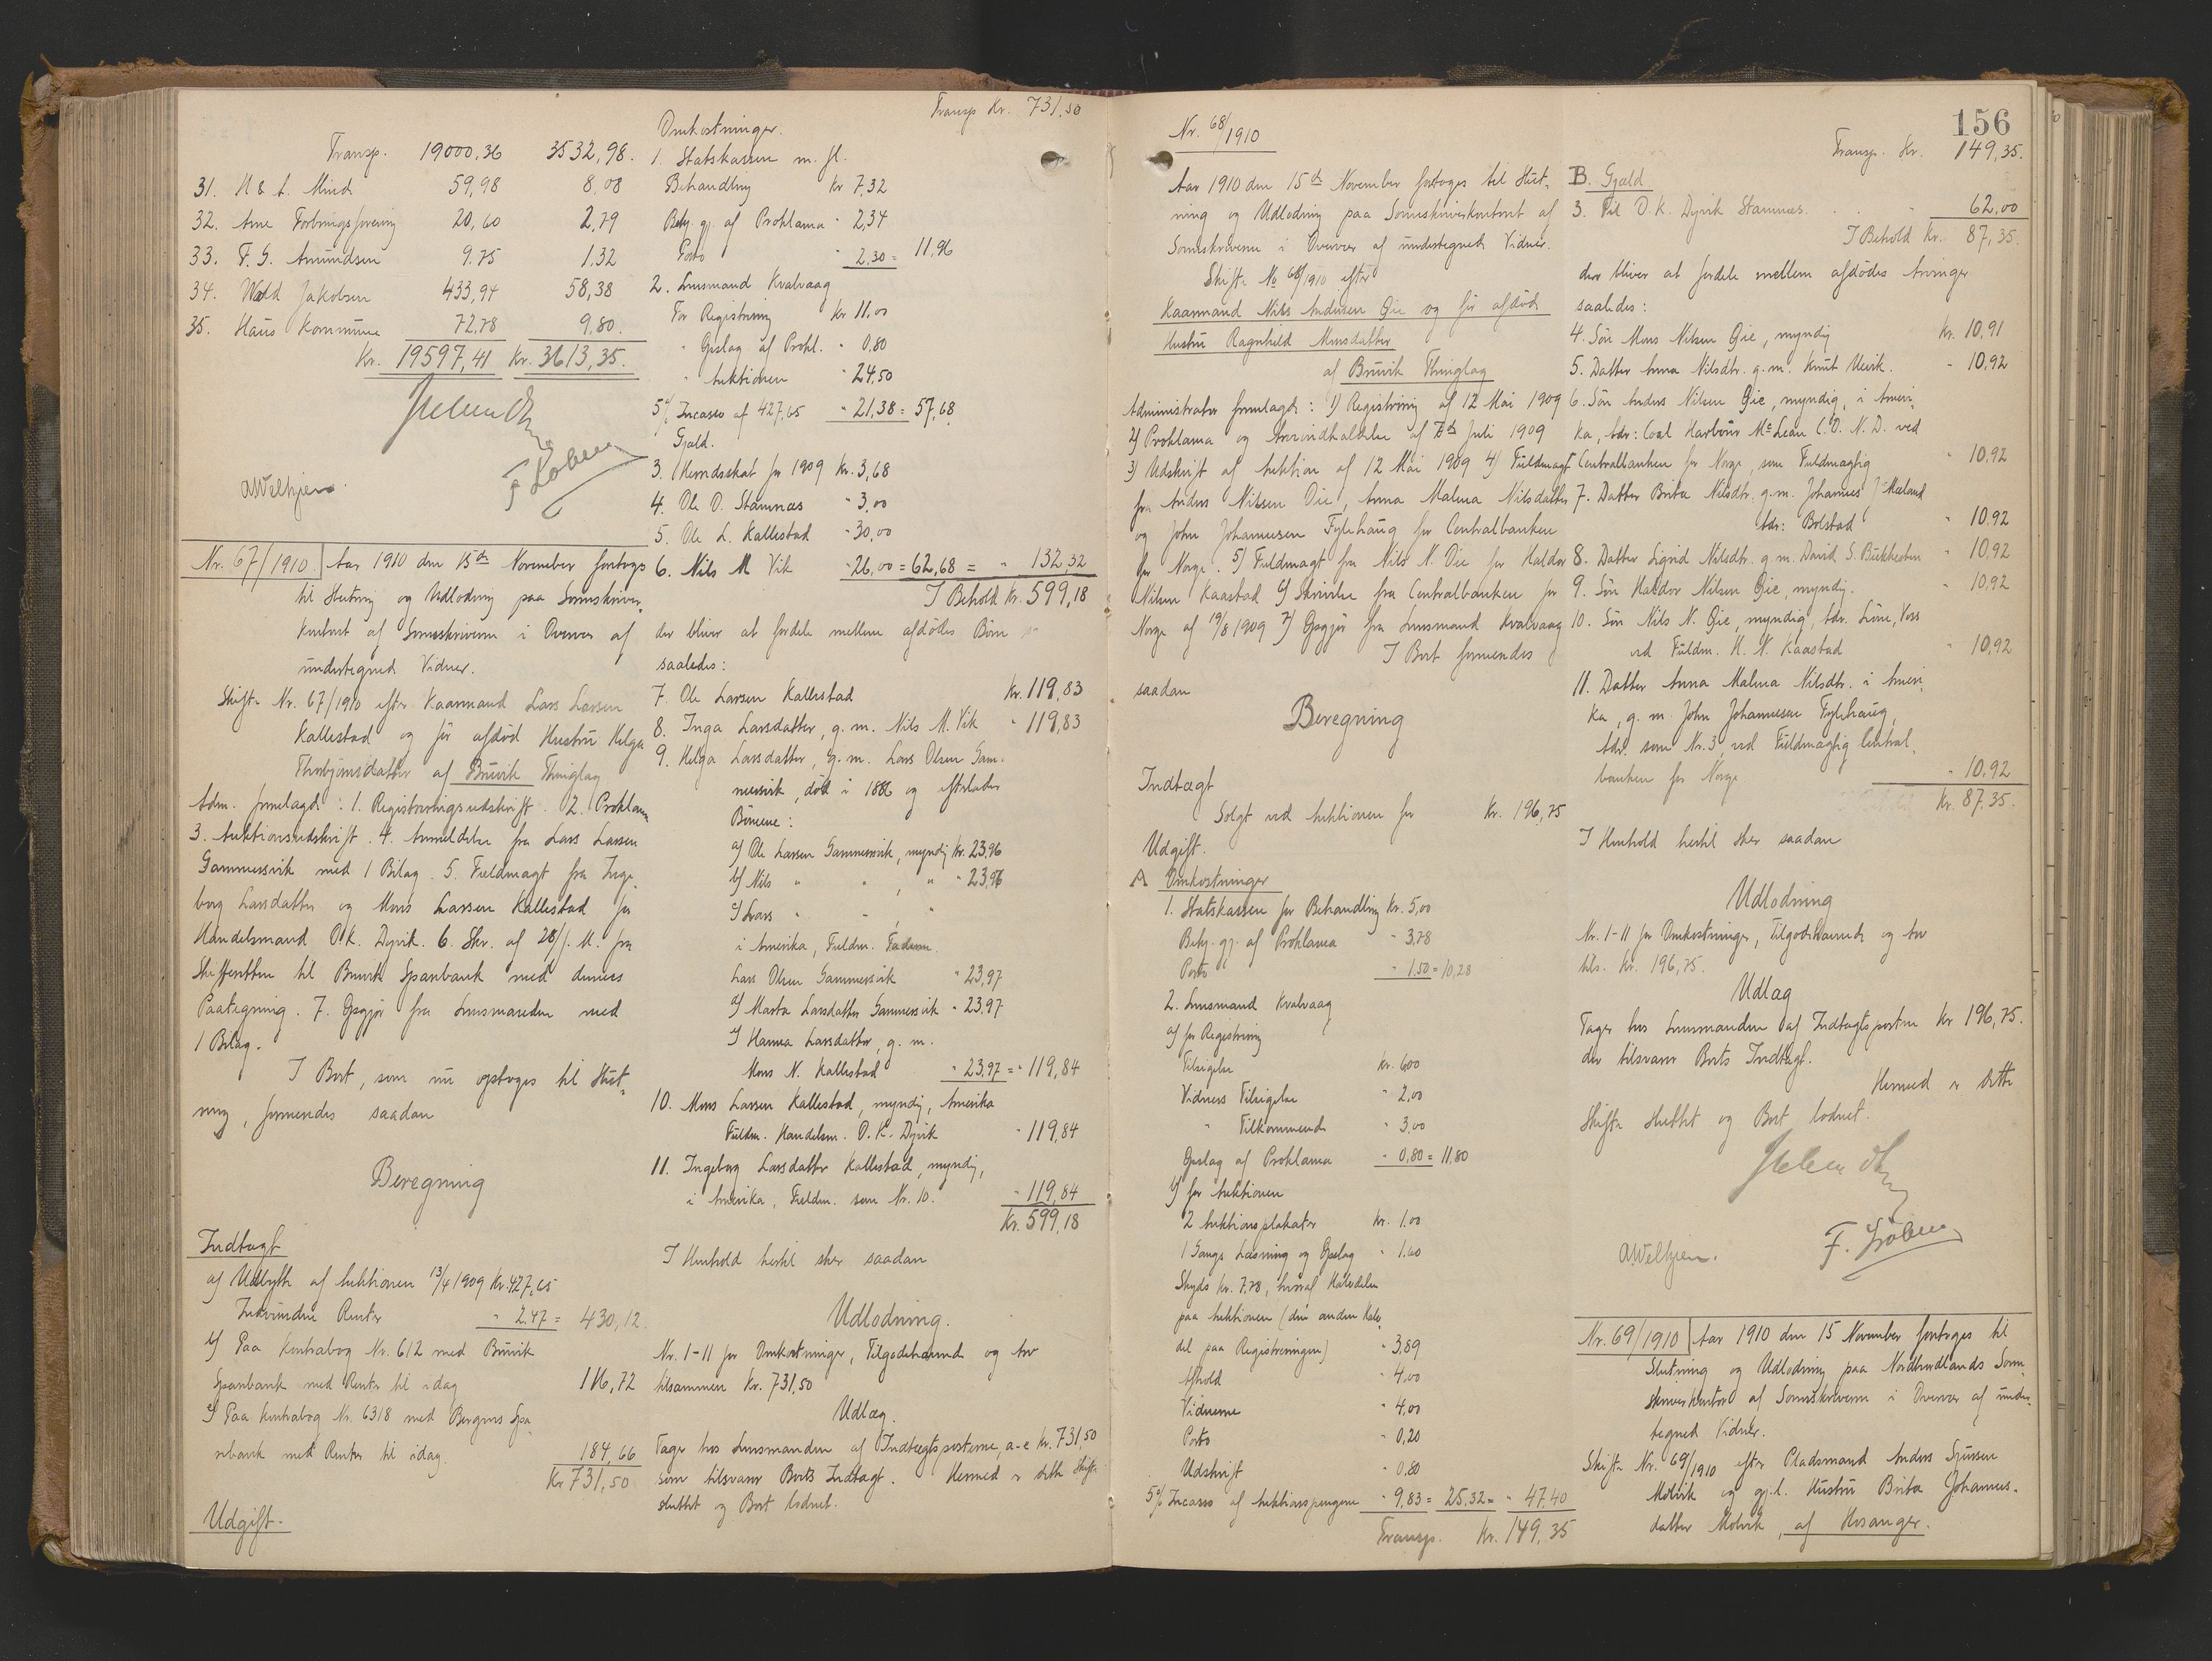 Transp. 19000,36 3532,98.
31. H & A. Mind 59,98 8,08
32. Arne Forbrugsforening 20,60 2,79
33. F. G. Amundsen 9,75 1,32
34. Wedd Jakobsen 433,94 58,38
35. Haus Kommune 72,78 9,80.
Kr. 19597,41 Kr. 3613,35.
AWelhjen.
Nr. 67/1910. Aar 1910 den 15de November foretoges
til Slutning og Udlodning paa Sorenskriver-
kontoret af Sorenskriveren i Overvær af
undertegnede Vidner.
Skifte Nr. 67/1910 efter Kaarmand Lars Larsen
Kallestad og før afdød Hustru Helga
Thorbjørnsdatter af Bruvik Thinglag
Adm. fremlagde: 1. Registreringsudskrift. 2. Proklama
3. Auktionsudskrift. 4. Anmeldelse fra Lars Larsen
Gammersvik med 1 Bilag. 5. Fuldmagt fra Inge-
borg Larsdatter og Mons Larsen Kallestad for
Handelsmand O.K. Dyvik. 6. Skr. af 28/1. M. fra
Skifteretten til Bruvik Sparebank med dennes
Paategning. 7. Opgjør fra Lensmanden med
1 Bilag.
I Boet, som nu optoges til Slut-
ning, foreendes saadan
Beregning
Indtægt
a) Udbytte af Auktionen 13/4 1909 Kr. 427,65
Indvundne Renter " 2.47 = 430,12.
b) Paa Kontrabog Nr. 612 med Bruvik
Sparebank med Renter til idag 116,72
c) Paa Kontrabog Nr. 6318 med Bergens Spa-
rebank med Renter til idag. 184,66
Kr 731,50
Udgift.
Transp Kr. 731,50
Omkostninger.
1. Statskassen m. fl.
Behandling Kr 7,32
Bekj. gj. af Proklama " 2,34
Porto " 2,30 = 11,96
2. Lensmand Kvalvaag
For Registrering Kr 11.00
" Opslag af Prokl. " 0,80
" Auktionen " 24,50
5% Incasso af 427,65 " 21,38 = 57,68
Gjæld.
3. Herredsskat for 1909 Kr. 3,68
4. Ole O. Stamnæs " 3,00
5. Ole L. Kallestad " 30,00
6. Nils M Vik " 26,00 = 62,68 = " 132,32
I Behold Kr. 599,18
der bliver at fordele mellem afdødes Børn
saaledes:
7. Ole Larsen Kallestad Kr. 119,83
8. Inga Larsdatter, g. m. Nils M. Vik " 119,83
9. Helga Larsdatter, g. m. Lars Olsen Gam-
mersvik, død i 1886 og efterlader
Børnene:
a) Ole Larsen Gammersvik, myndig Kr. 23,96
b) Nils " " , " " 23,96
c) Lars " " , "
i Amerika, Fuldm. Faderen
Lars Olsen Gammersvik " 23,97
d) Marta Larsdatter Gammersvik " 23,97
e) Hanna Larsdatter, g. m.
Mons N. Kallestad " 23,97 = " 119,84
10. Mons Larsen Kallestad, myndig, Amerika
Fuldm. Handelsm. O. K. Dyvik " 119,84
11. Ingeborg Larsdatter Kallestad, myndig,
i Amerika, Fuldm. som Nr. 10. " 119,84
Kr. 599,18
I Henhold hertil sker saadan
Udlodning.
Nr. 1-11 for Omkostninger, Tilgodehavende og Arv
tilsammen Kr. 731,50
Udlæg.
Tages hos Lensmanden af Indtægtsposterne, a-c Kr. 731,50
som tilsvarer Boets Indtægt. Hermed er dette Skifte
sluttet og Boet lodnet.
156
Nr. 68/1910
Aar 1910 den 15de November foretoges til Slut-
ning og Udlodning paa Sorenskriverkontoret af
Sorenskriveren i Overvær af undertegnede Vidner.
Skifte No 68/1910 efter
Kaarmand Nils Andersen Øie og før afdød
Hustru Ragnhild Monsdatter
af Bruvik Thinglag
Administrator fremlagde: 1) Registrering af 12 Mai 1909
2) Proklama og Arveindkaldelse af 7de Juli 1909
3) Udskrift af Auktion af 12 Mai 1909 4) Fuldmagt
fra Anders Nilssen Øie, Anna Malena Nilsdatter
og John Johannesen Fylehaug for Centralbanken
for Norge. 5) Fuldmagt fra Nils N. Øie for Haldor
Nilsen Kaastad 6) Skrivelse fra Centralbanken for
Norge af 19/8 1909 7) Opgjør fra Lensmand Kvalvaag
I Boet foreendes
saadan
Beregning
Indtægt
Solgt ved Auktionen for Kr. 196,75
Udgift.
A Omkostninger
1. Statskassen for Behandling Kr. 5,00
Bekj. gj. af Proklama " 3,78
Porto " 1,50 = 10,28
2. Lensmand Kvalvaag
a) for Registrering
Tilsigelse Kr. 6,00
Vidners Tilsigelse " 2,00
" Tilkommende " 3,00
Opslag af Proklama " 0,80 = 11,80
b) for Auktionen
2 Auktionsplakater Kr. 1.00
1 Gangs Læsning og Opslag " 1.60
Skyds Kr. 7.78, hvoraf Halvdelen
paa Auktionen (den anden Halv-
del paa Registreringen) " 3,89
Afhold " 4,00
Vidnerne " 4,00
Porto " 0,20
Udskrift " 0,80
5% Incasso af Auktionspengene " 9,83 = 25,32 = " 47,40
Transp. Kr. 149,35
Transp. Kr. 149,35.
B. Gjæld
3. Til O. K. Dyvik Stamnæs. " 62,00
I Behold Kr. 87,35.
der bliver at fordele mellem afdødes Arvinger
saaledes:
4. Søn Mons Nilsen Øie, myndig Kr. 10,91
5. Datter Anna Nilsdtr. g. m. Knut Ulvik. " 10,92
6. Søn Anders Nilsen Øie, myndig, i Ameri-
ka, Adr: Coal Harbour Mc Lean C.O. N. D. ved
Centralbanken for Norge, som Fuldmægtig " 10,92
7. Datter Brita Nilsdtr. g. m. Johannes J. Mæland
Adr: Bolstad " 10.92
8. Datter Sigrid Nilsdtr. g. m. David S. " 10,92
9. Søn Haldor Nilsen Øie, myndig. " 10,92
10. Søn Nils N. Øie, myndig, Adr. Lône, Voss
ved Fuldm. H. N. Kaastad " 10,92
11. Datter Anna Malena Nilsdtr. i Ameri-
ka, g. m. John Johannesen Fylehaug,
Adr. som Nr. 3, ved Fuldmægtig Central-
banken for Norge " 10,92
Kr. 87,35.
I Henhold hertil sker saadan
Udlodning
Nr. 1-11 for Omkostninger, Tilgodehavende og Arv
tils. Kr. 196,75.
Udlæg
Tages hos Lensmanden af Indtægtsposten Kr 196,75.
der tilsvarer Boets Indtægt.
Hermed er dette
Skifte sluttet og Boet lodnet.
AWelhjen.
Nr. 69/1910 Aar 1910 den 15 November foretoges til
Slutning og Udlodning paa Nordhordlands Soren-
skriverkontor af Sorenskriveren i Overvær af under-
tegnede Vidner.
Skifte Nr. 69/1910 efter Pladsmand Anders Sjursen
Molvik og gj.l. Hustru Brita Johannes-
datter Molvik, af Hosanger.